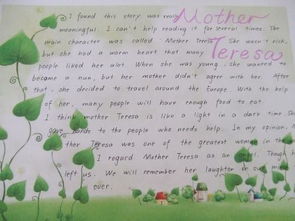 Mother
Teresa
I found this story was very
meaningful. I can't help reading it for several times. The
main character was called Mother Teresa. She wasn't rich,
but she had a worm heart that many
people liked her alot. When she was young, she wanted to
became a nun, but her mother didn't agree with her. After
that, she decided to travel around the Europe. With the help
of her, many people will have enough food to eat.
I think mother Teresa is like a light in a dark time. She
hands to the people who needs help. In my opinion,
ther Teresa was one of the greatest women in the
I regard Mother Teresa as an angel. Though
left us. We will remember her laughter
ever.